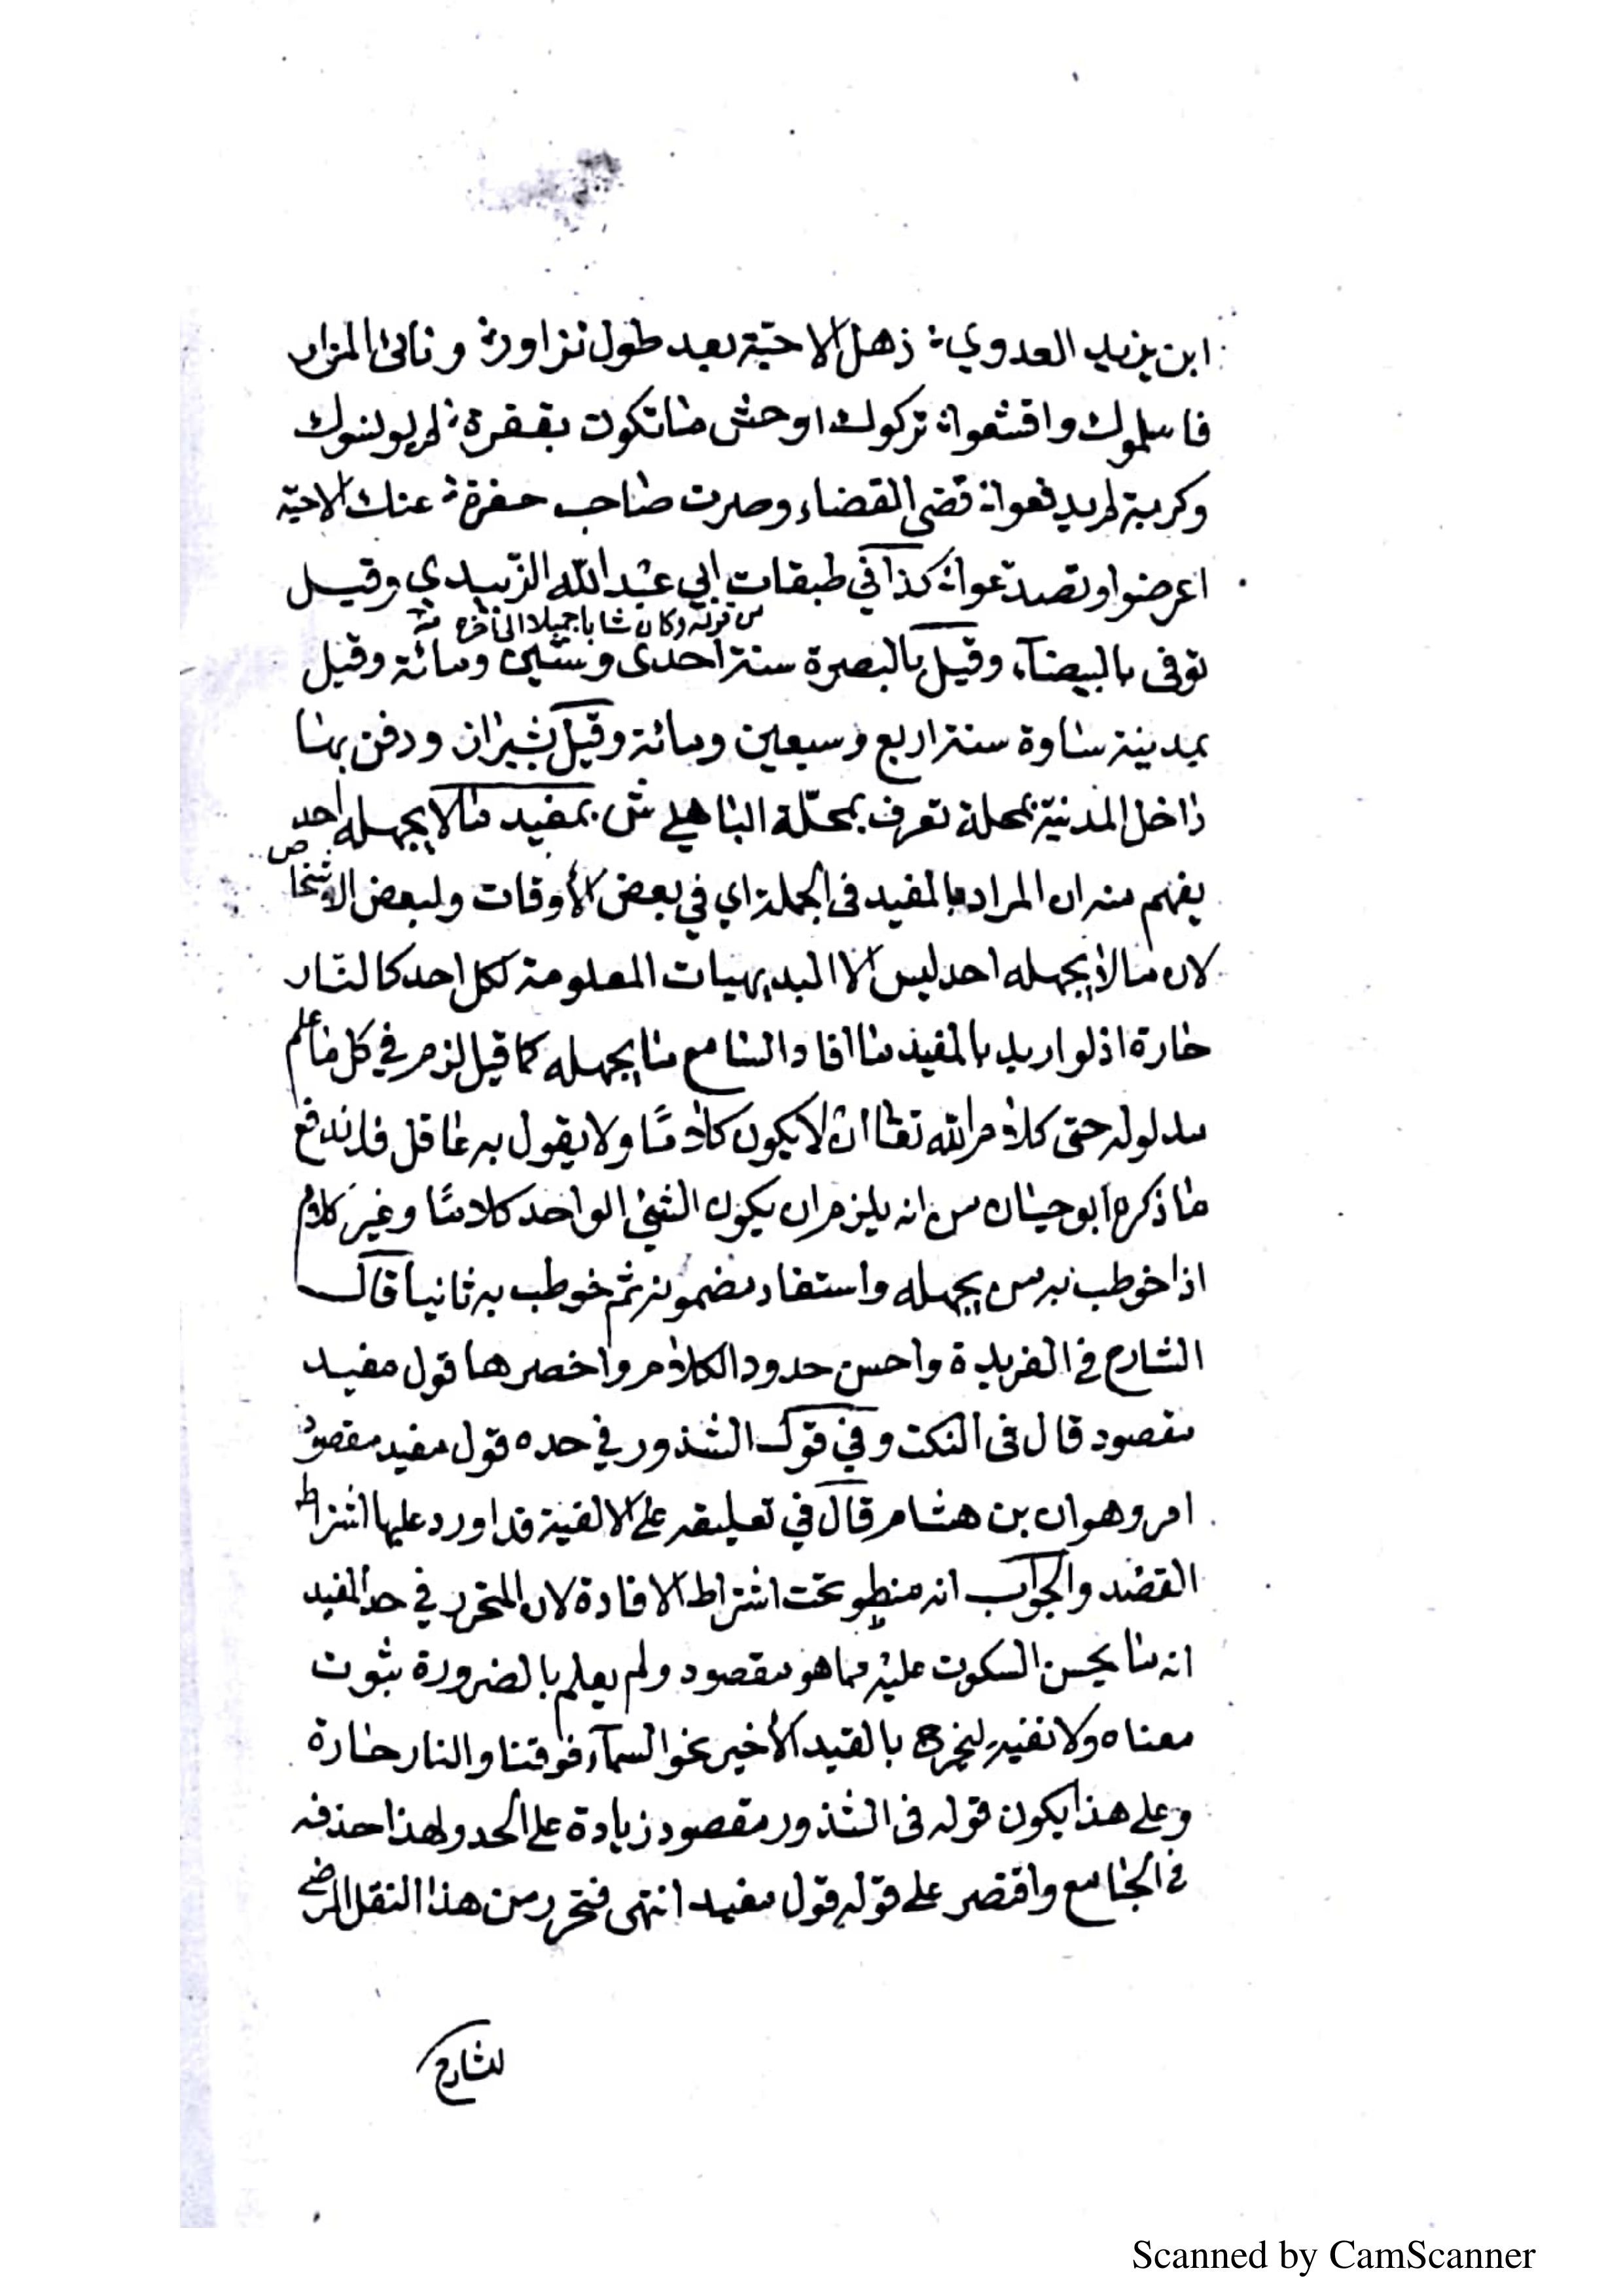 ابن يزيد العدوي ؞ ذهل الاحبّة بعد طول تزاور ؞ ونائ المزار
فاسلموك واقشعوا ؞ تركوك اوحش ما تكون بقفرة ؞ لم يونسوك
وكربة لم يدفعوا ؞ قضى القضاء وصرت صاحب حفرة ؞ عنك الاحبّة
اعرضوا وتصدّعوا ؞ كذا في طبقات ابي عبد الله الزّبيدي وقيل
من قوله وكان شابا جميلا الى آخره منه
توفى بالبيضآء وقيل بالبصرة سنة احدى وستين ومائة وقيل
بمدينة ساوة سنة اربع وسبعين ومائة وقيل بشيراز ودفن بها
داخل المدنية بمحلة تعرف بمحلّة الباهلي ش بمفيد ما لا يجهله احد
يفهم منه ان المراد بالمفيد فى الجملة اي في بعض الأوقات ولبعض الاشخاص
لان ما لا يجهله احد ليس الا البديهيات المعلومة لكل احد كالنّار
حارة اذ لو اريد بالمفيد ما افاد السامع ما يجهله كما قيل لزم في كل ما علم
مدلوله حتى كلام الله تعالى ان لا يكون كلامًا ولا يقول به عاقل فاندفع
ما ذكره ابو حيان من انه يلزم ان يكون الشئ الواحد كلامًا وغير كلام
اذا خوطب به من يجهله واستفاد مضمونه ثم خوطب به ثانيا قال
الشارح في الفريدة واحسن حدود الكلام واخصرها قول مفيد
مقصود قال فى النكت وفي قول الشذور في حده قول مفيد مقصود
امر وهو ان بن هشام قال في تعليقه على الالفية قد اورد عليها اشتراط
القصد والجواب انه منطو تحت اشتراط الافادة لان المتحرر في حد المفيد
انه ما يحسن السكوت عليه مما هو مقصود ولم يعلم بالضرورة ثبوت
معناه ولا نفيه ليخرج بالقيد الأخير نحو السمآء فوقنا والنار حارة
وعلى هذا يكون قوله فى الشذور مقصود زيادة على الحد ولهذا حذفه
في الجامع واقتصر على قوله قول مفيد انتهى فتحرر من هذا النقل المرضي
للشارح
Scanned by CamScanner